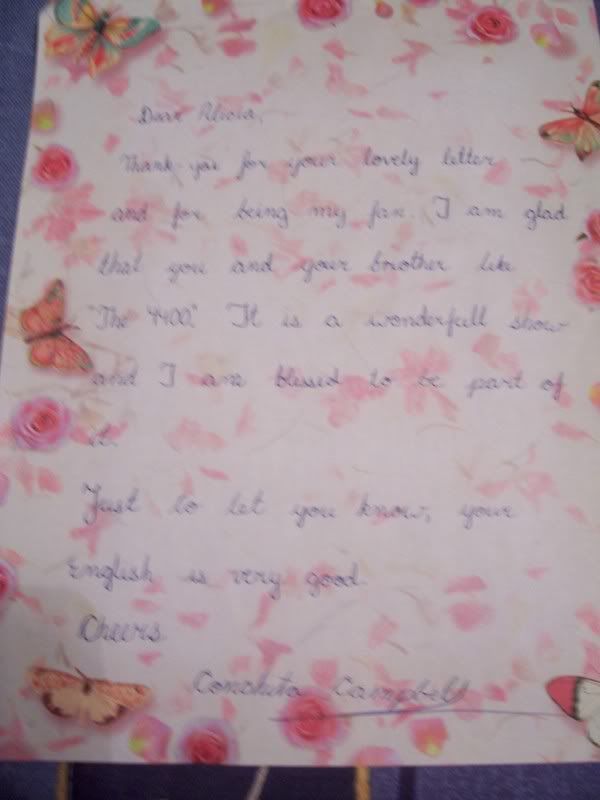 Dear Alicia,
Thank you for your lovely letter
and for being my fan. I am glad
that you and your brother like
"The 4400." It is a wonderfull show
and I am blessed to be part of
it.
Just to let you know, your
English is very good.
Cheers
Conchita Campbell